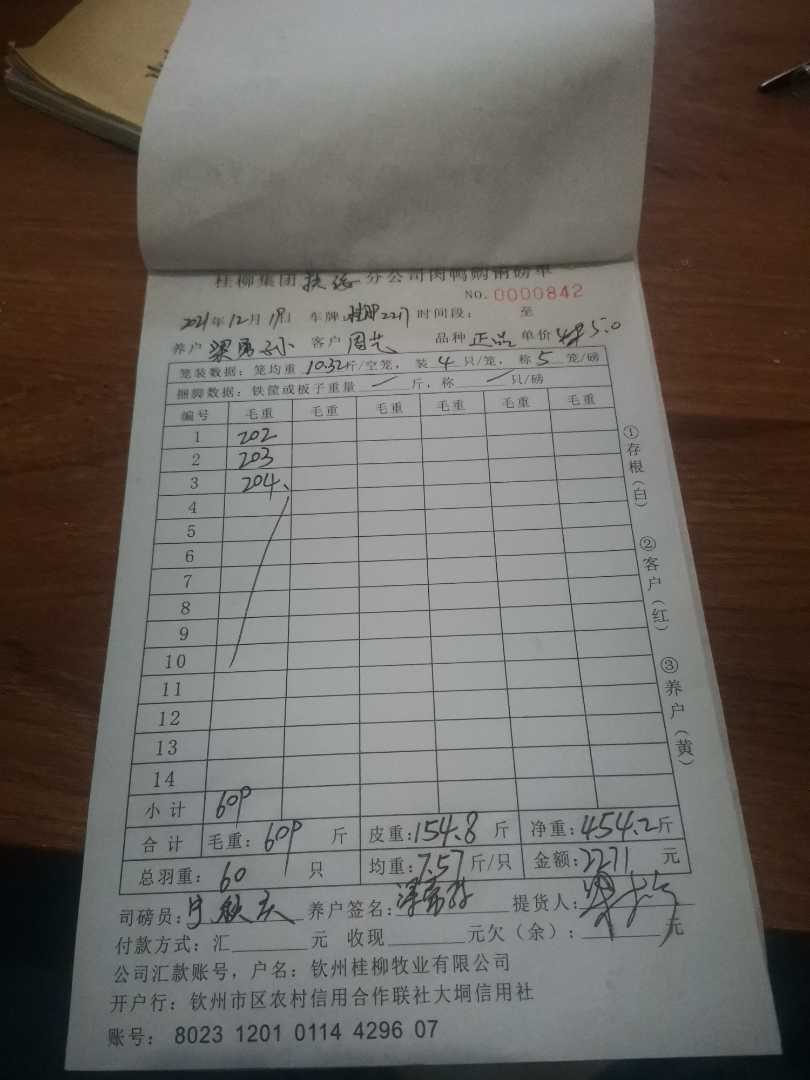 桂柳集团扶绥分公司肉鸭购销磅单
NO. 0000842
2021年12月19日 车牌 桂 2217 时间段: 至
养户 梁 客户 周艺 品种 正品 单价 5.0
笼装数据: 笼均重 10.32 斤/空笼, 装 4 只/笼, 称 5 笼/磅
捆脚数据: 铁筐或板子重量 / 斤, 称 / 只/磅
编号 毛重 毛重 毛重 毛重 毛重 毛重
1 202
2 203
3 204
4
5
6
7
8
9
10
11
12
13
14
小计 609
合计 毛重: 609 斤 皮重: 154.8 斤 净重: 454.2 斤
总羽重: 60 只 均重: 7.57 斤/只 金额: 2271 元
司磅员: 养户签名: 提货人:
付款方式: 汇 元 收现 元欠(余): 元
公司汇款账号, 户名: 钦州桂柳牧业有限公司
开户行: 钦州市区农村信用合作联社大垌信用社
账号: 8023 1201 0114 4296 07
①存根(白)
②客户(红)
③养户(黄)